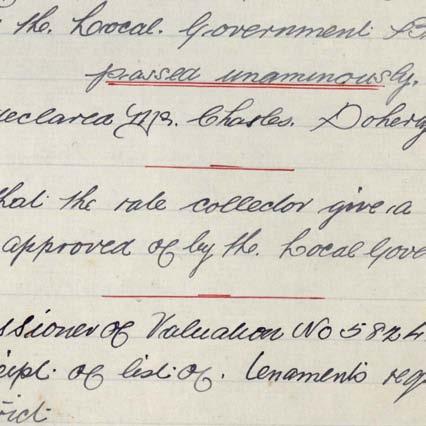 the Local. Government
passed unaminously.
declared Mr. Charles. Doherty
that the rate collector give a
approved of by the Local Gove
ssioner of Valuation No 5824
eipt. of list of. tenaments req
rict